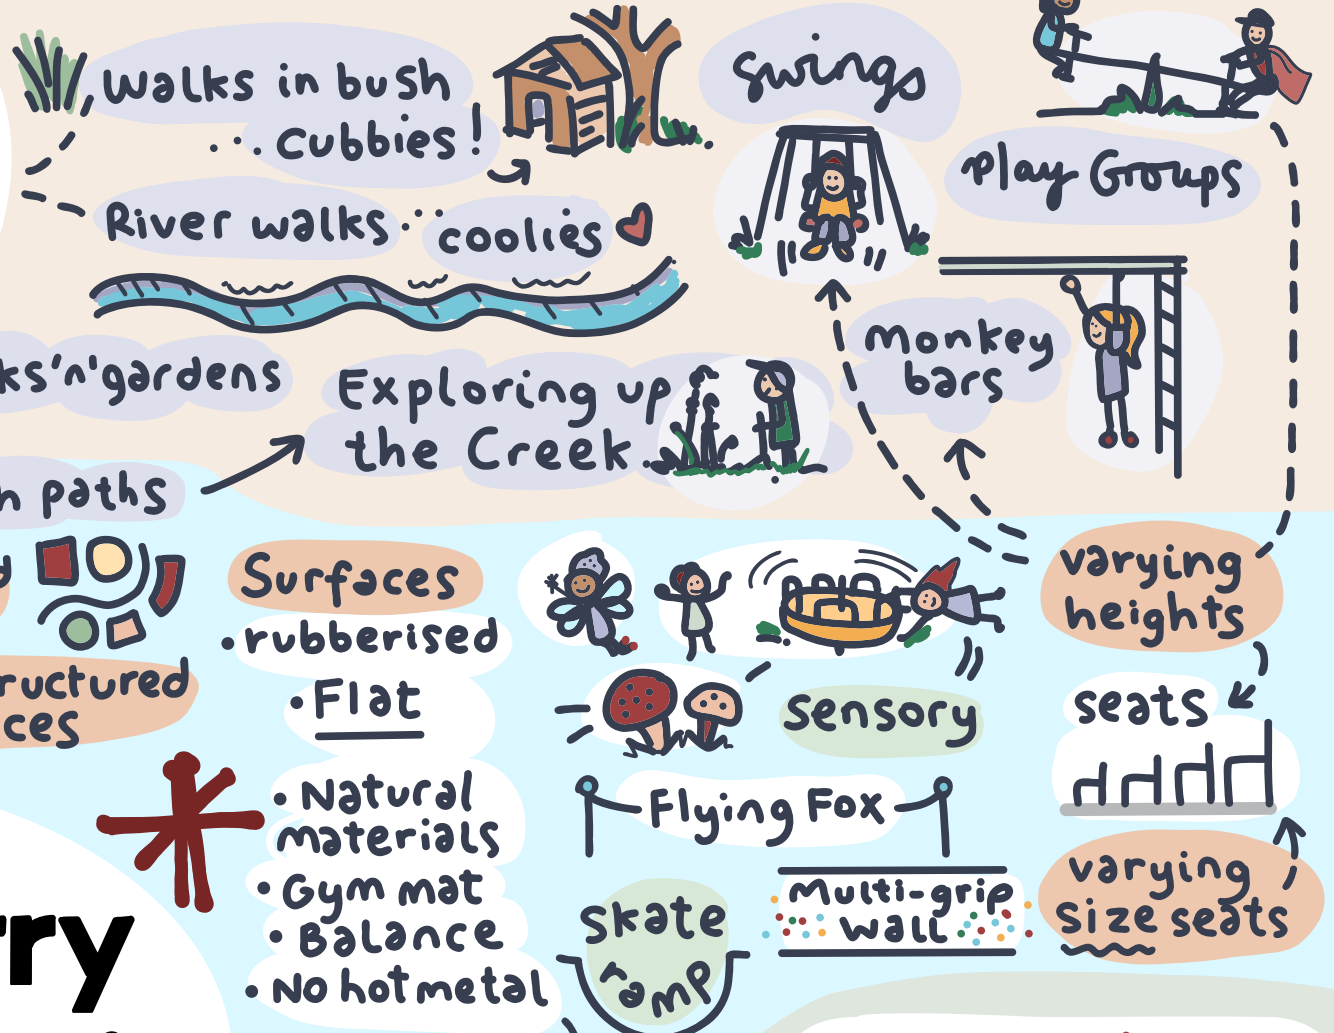 Walks in bush
cubbies!
River walks
coolies
swings
Play Groups
monkey
bars
ks'n'gardens
Exploring up
the Creek
paths
Surfaces
• rubberised
• Flat
• Natural
materials
• Gym mat
• Balance
• No hot metal
ructured
ces
sensory
Flying Fox
Multi-grip
wall
skate
ramp
varying
heights
seats
varying
size seats
rry